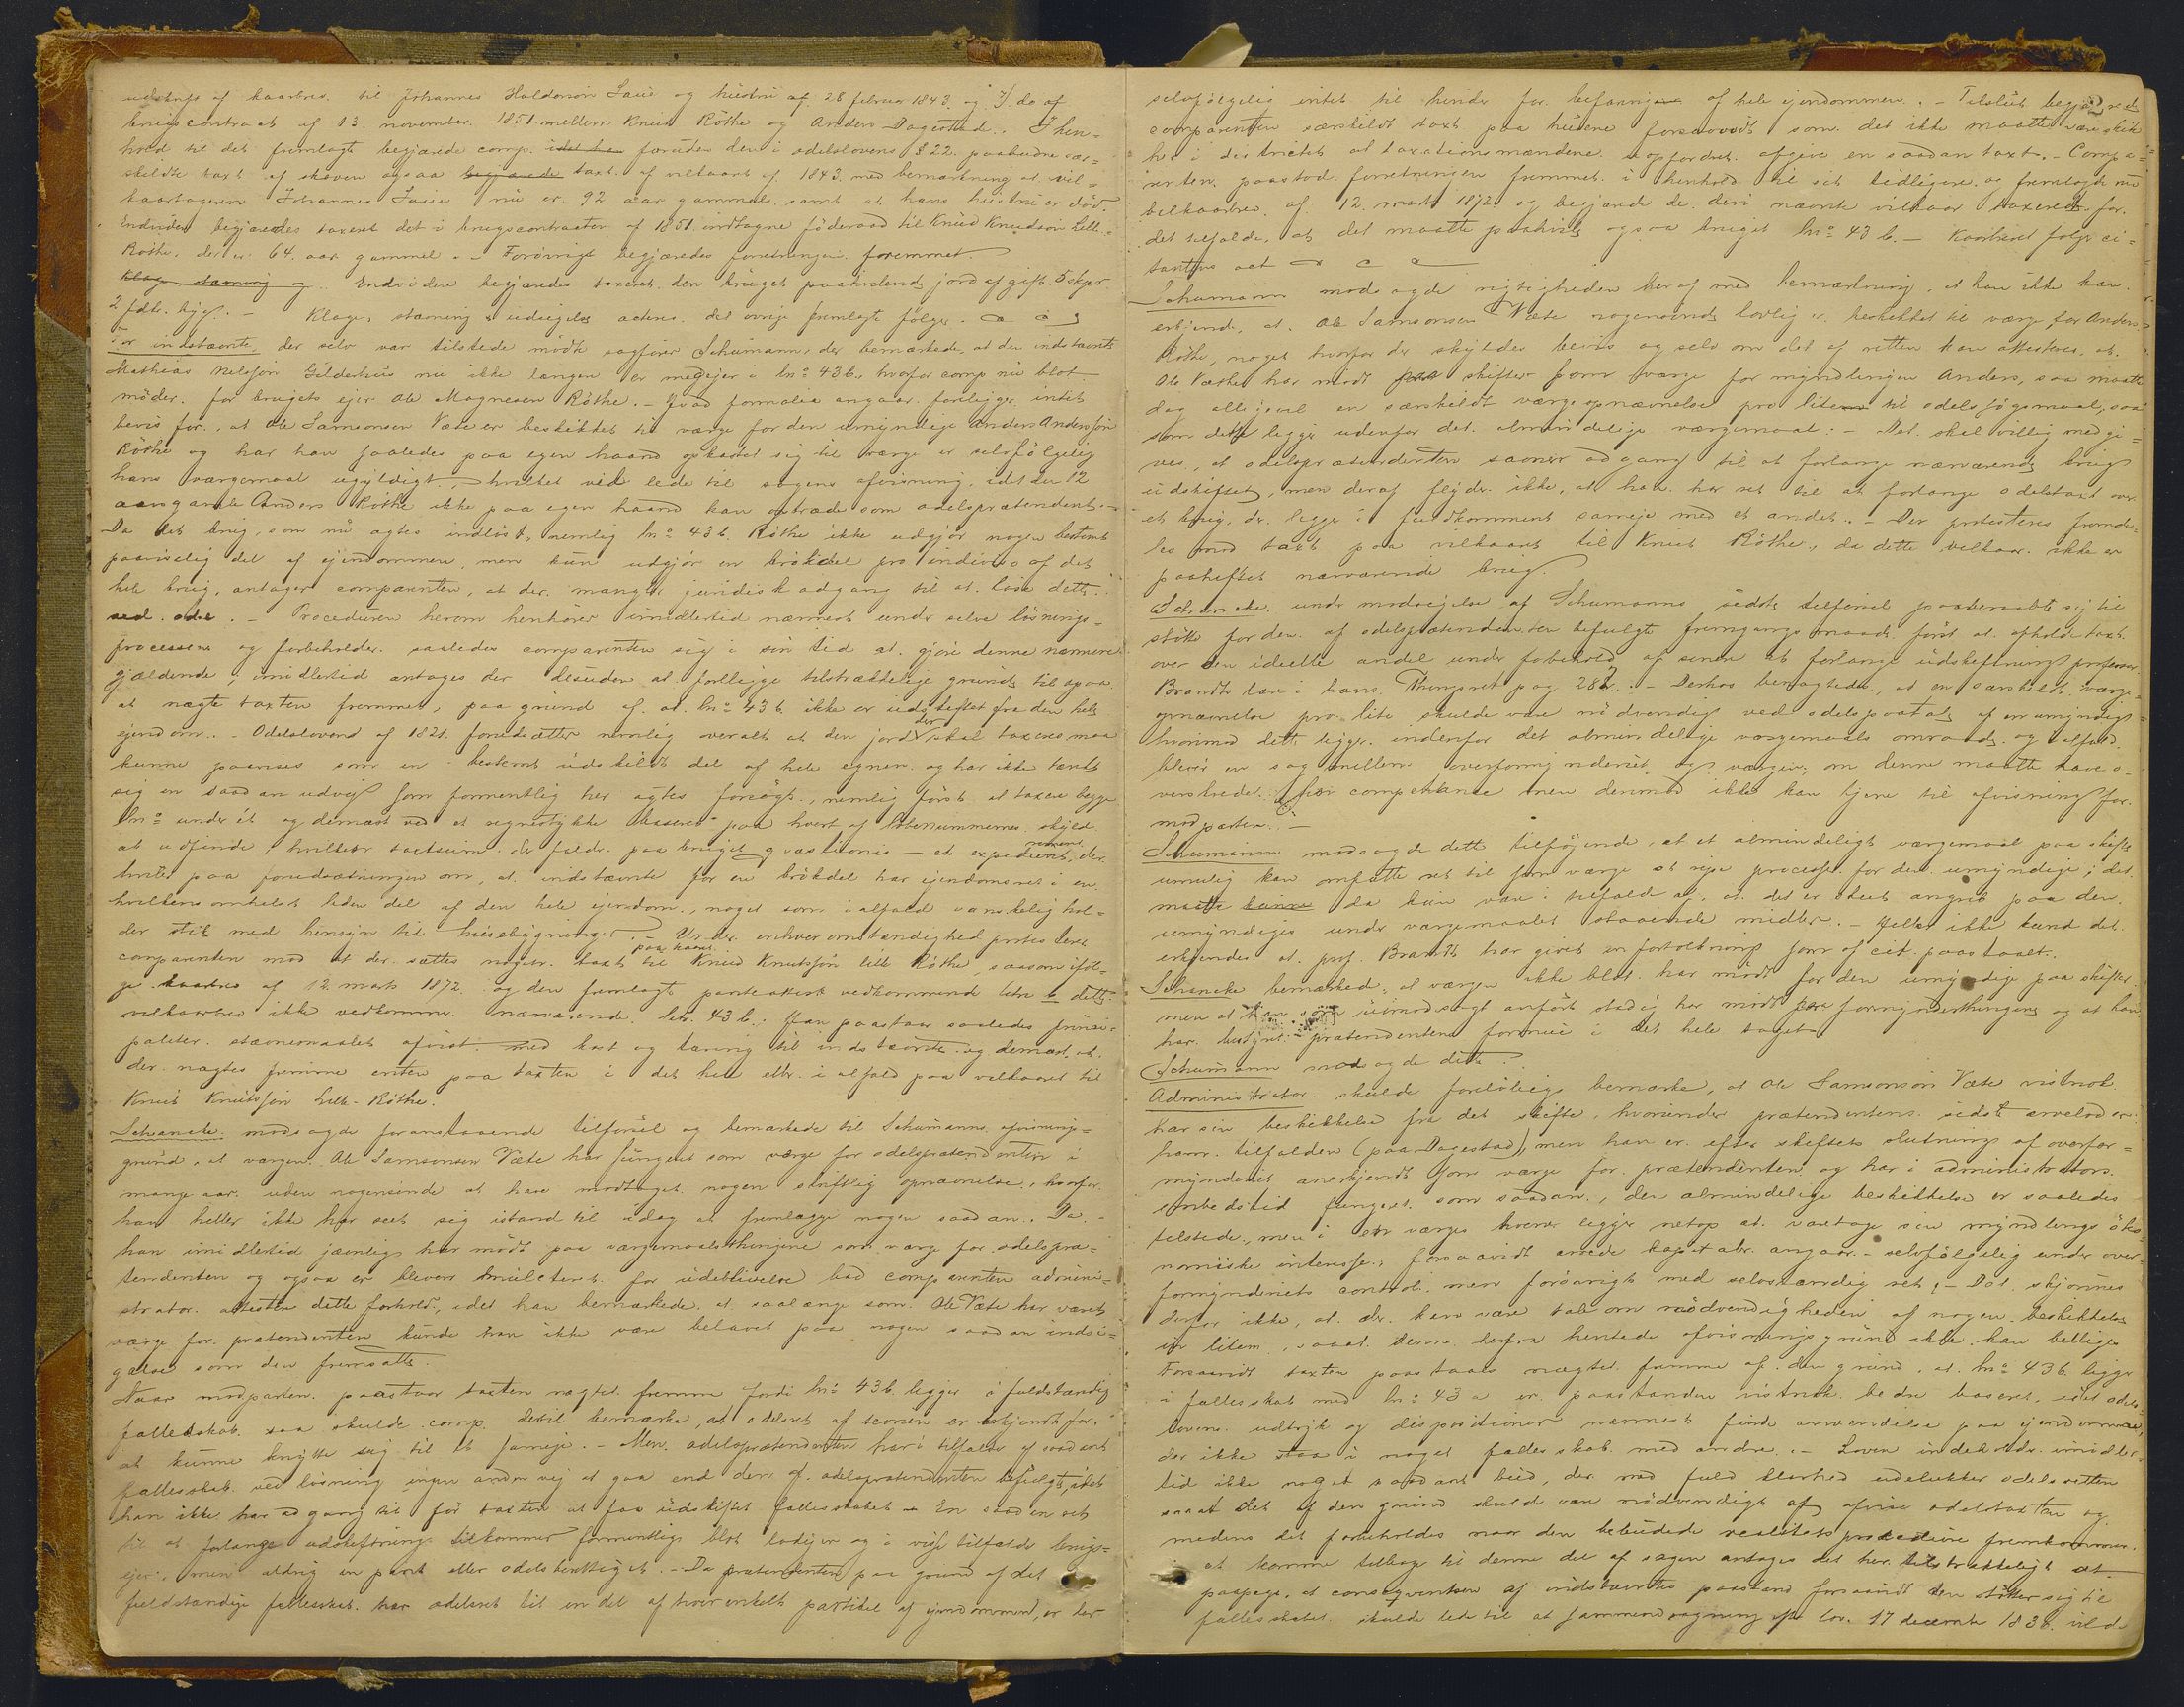 udskrift af kaarbrev til Johannes Haldorsøn Saue og hustru af 28 februar 1843 og 3/ do af
brugscontract af 13. november 1851 mellem Knud Röthe og Anders Dagestad. I hen=
hold til det fremlagte begjærede comp. foruden den i odelslovens § 22 paabudne sær=
skildte taxt af skoven ogsaa begjærede taxt af vilkaaret af 1843 med bemærkning at vil=
kaartageren Johannes Saue nu er 92 aar gammel samt at hans hustru er död.
Endvidere begjæredes taxeret det i brugscontracten af 1851 indtagne föderaad til Knud Knudsøn Lille=
Röthe, der er 64 aar gammel. Forövrigt begjæredes forretningen fremmet.
Klage, stævning og Endvidere begjæredes taxeret den bruget paahvilende jordafgift 5 skjpr
2 fdkr. byg. – Klage, stævning & udsigelse acteres. det övrige fremlagte følger.
For indstævnte, der selv var tilstede mödte sagförer Schumann, der bemærkede, at den indstævnte
Mathias Nelsøn Gilderhus nu ikke længer er medejer i bn: 43 b. hvorfor comp nu blot
möder for brugets ejer Ole Magnesen Röthe. – Hvad formalia angaar foreligger intet
bevis for, at Ole Samsonsen Væte er beskikket til værge for den umyndige Anders Andersøn
Röthe og har han saaledes paa egen haand opkastet sig til værge er selvfölgelig
hans værgemaal ugyldigt, hvilket vil lede til sagens afvisning, idet den 12
aar gamle Anders Röthe ikke paa egen haand kan optræde som odelsprætendent.
Da det brug, som nu agtes indlöst, nemlig bn: 43 b. Röthe ikke udgjör nogen bestemt
paaviselig del af ejendommen, men kun udgjör en brökdel pro indiviso af det
hele brug, antager comparenten, at der mangler juridisk adgang til at löse dette
ved odel. – Proceduren herom henhörer imidlertid nærmest under selve lösnings=
processen og forbeholder saaledes comparenten sig i sin tid at gjöre denne nærmere
gjældende; imidlertid antages der desuden at foreligge tilstrækkelige grunde til ogsaa
at nægte taxten fremmet, paa grund af at bn: 43 b ikke er udskiftet fra den hele
ejendom. – Odelsloven af 1821 forudsætter nemlig overalt at den jord der skal taxeres maa
kunne paavises som en bestemt udskildt del af hele egnen og har ikke tænkt
sig en saadan udvej som formentlig her agtes forsögt, nemlig först at taxere begge
bn: under ét og dernæst ved et regnestykke baseret paa hvert af löbenummernes skyld
at udfinde hvilken taxtsum der falder paa bruget qvæstionis – et experiment, der
hviler paa forudsætningen om, at indstævnte for en brökdel har ejendomsret i en
hvilkensomhelst liden del af den hele ejendom, noget som i alfald vanskelig hol=
der stik med hensyn til husebygninger. – Under enhver omstændighed protesterer
comparenten mod at der sættes nogen taxt paa kaaret til Knud Knutsøn lille Röthe, saasom iföl=
ge kaarbrev af 12 marts 1872 og den fremlagte panteattest vedkommende dette
vilkaarbrev ikke vedkommer nærværende bn. 43 b. Han paastaar saaledes princi=
paliter stævnemaalet afvist med kost og tæring til indstævnte og dernæst, at
der nægtes fremme enten paa taxten i det hele eller i alfald paa vilkaaret til
Knut Knutsøn Lille-Röthe.
Schancke modsagde foranstaaende tilförsel og bemærkede til Schumanns afvisnings=
grund, at værgen Ole Samsonsen Væte har fungeret som værge for odelsprætendenten i
mange aar uden nogensinde at have modtaget nogen skriftlig opnævnelse, hvorfor
han heller ikke har seet sig istand til idag at fremlægge nogen saadan. Da
han imidlertid jævnlig har mödt paa værgemaalsthingene som værge for odelspræ=
tendenten og ogsaa er bleven mulcteret for udeblivelse bad comparenten admini=
strator attestere dette forhold, idet han bemærkede, at saalænge som Ole Væte har været
værge for prætendenten kunde han ikke være belavet paa nogen saadan indsi=
gelse som den fremsatte.
Naar modparten paastaar taxten nægtet fremme fordi bn: 43 b. ligger i fuldstændig
fællesskab saa skulde comp. dertil bemærke, at odelsret af teorien er erkjendt for
at kunne knytte sig til et sameje. – Men odelsprætendenten har i tilfælde af saadant
fællesskab ved lösning ingen anden vej at gaa end den af odelsprætendenten befulgte, idet
han ikke har adgang til för taxten at faa udskiftet fællesskabet. En saadan ret
til at forlange udskiftning tilkommer formentlig blot lodejer og i visse tilfælde brugs=
ejer, men aldrig en pant eller odelsberettiget. – Da prætendenten paa grund af det
fuldstændige fællesskab har odelsret til en del af hver enkelt partikel af ejendommen, er der
selvfölgelig intet til hinder for befaringen af hele ejendommen. – Tilslut begjærede
comparenten særskildt taxt paa husene forsaavidt som det ikke maatte være skik
her i districtet at taxationsmændene uopfordret afgive en saadan taxt. – Compa=
renten paastod forretningen fremmet i henhold til sit tidligere og fremlagde nu
vilkaarbrev af 12. marts 1872 og begjærede de deri nævnte vilkaar taxerede for
det tilfælde, at det maatte paahvile ogsaa bruget bn: 43 b. – Kaarbrevet fölger ci=
tantens act
Schumann modsagde rigtigheden heraf med bemærkning, at han ikke kan
erkjende, at Ole Samsonsen Væte nogensinde lovlig er beskikket til værge for Anders
Röthe, noget hvorfor der skyldes bevis og selv om det af retten kan attesteres, at
Ole Væthe har mödt paa skifter som værge for myndlingen Anders, saa maatte
dog alligevel en særskildt værgeopnævnelse pro litem til odelssögsmaal, saa
som dette ligger udenfor det almindelige værgemaal: – Det skal villig medgi=
ves, at odelsprætendenten savner adgang til at forlange nærværende brug
udskiftet, men deraf flyder ikke, at han har ret til at forlange odelstaxt over
et brug, der ligger i fuldkomment sameje med et andet. – Der protesteres fremde=
les mod taxt paa vilkaaret til Knut Röthe, da dette vilkaar ikke er
paaheftet nærværende brug.
Schancke under modsigelse af Schumanns sidste tilförsel paaberaabte sig til
stötte for den af odelsprætendenten befulgte fremgangsmaade först at afholde taxt
over den ideelle andel under forbehold af senere at forlange udskiftning professor
Brandts lære i hans Thingsret pag 282. – Derhos benægtedes, at en særskildt værge=
opnævnelse pro lite skulde være nödvendig ved odelspaatale af en umyndig
hvorimod dette ligger indenfor det almindelige værgemaals omraade og i alfald
blev en sag mellem overformynderiet og værgen, om denne maatte have o=
verskredet sin competance men derimod ikke kan tjene til afvisning for
modparten. –
Schumann modsagde dette tilföjende, at et almindeligt værgemaal paa skifte
umulig kan omfatte ret til som værge at rejse processer for den umyndige; det
maatte da kun være i tilfælde af, at det er skeet angreb paa den
umyndiges under værgemaalet staaende midler. – Heller ikke kund det
erkjendes at prof. Brandt har givet en fortolkning som af cit. paastaaet.
Schancke bemærkede, at værgen ikke blot har mödt for den umyndige paa skifter
men at han som uimodsagt anfört stadig har mödt paa formynderthingene og at han
har bestyret prætendentens formue i det hele taget
Schumann modsagde dette.
Administrator skulde foreløbig bemærke, at Ole Samsonsøn Væte vistnok
har sin beskikkelse fra det skifte, hvorunder prætendentens sidste arvelod er
ham tilfalden (paa Dagestad), men han er efter skiftets slutning af overfor=
mynderiet anerkjendt som værge for prætendenten og har i administrators
embedstid fungeret som saadan, den almindelige beskikkelse er saaledes
tilstede, men i en værges hverv ligger netop at varetage sin myndlings öko=
nomiske interesse, forsaavidt arvede kapitaler angaar – selvfölgelig under over=
formynderiets control, men forövrigt med selvstændig ret; – Det skjønnes
derfor ikke, at der kan være tale om nödvendigheden af nogen beskikkelse
in litem, saaat denne herfra hentede afvisningsgrund ikke kan billiges
Forsaavidt taxten paastaaes nægtet fremme af den grund, at bn: 43 b. ligger
i fællesskab med bn: 43 a er paastanden vistnok bedre baseret, idet odels=
lovens udtryk og dispositioner nærmest finde anvendelse paa ejendomme,
der ikke staa i noget fællesskab med andre. – Loven indeholder imidler=
tid ikke noget saadant bud, der med fuld klarhed udelukker odelsretten
saaat det af den grund skulde være nödvendigt at afvise odelstaxten og
medens det forbeholdes naar den bebudede realitetsprocedure fremkommer
at komme tilbage til denne del af sagen antages det her tilstrækkeligt at
paapege, at consequentsen af indstævntes paastand forsaavidt den stötter sig til
fællesskabet skulde lede til at sammendragning efter lov 17 december 1836 vilde